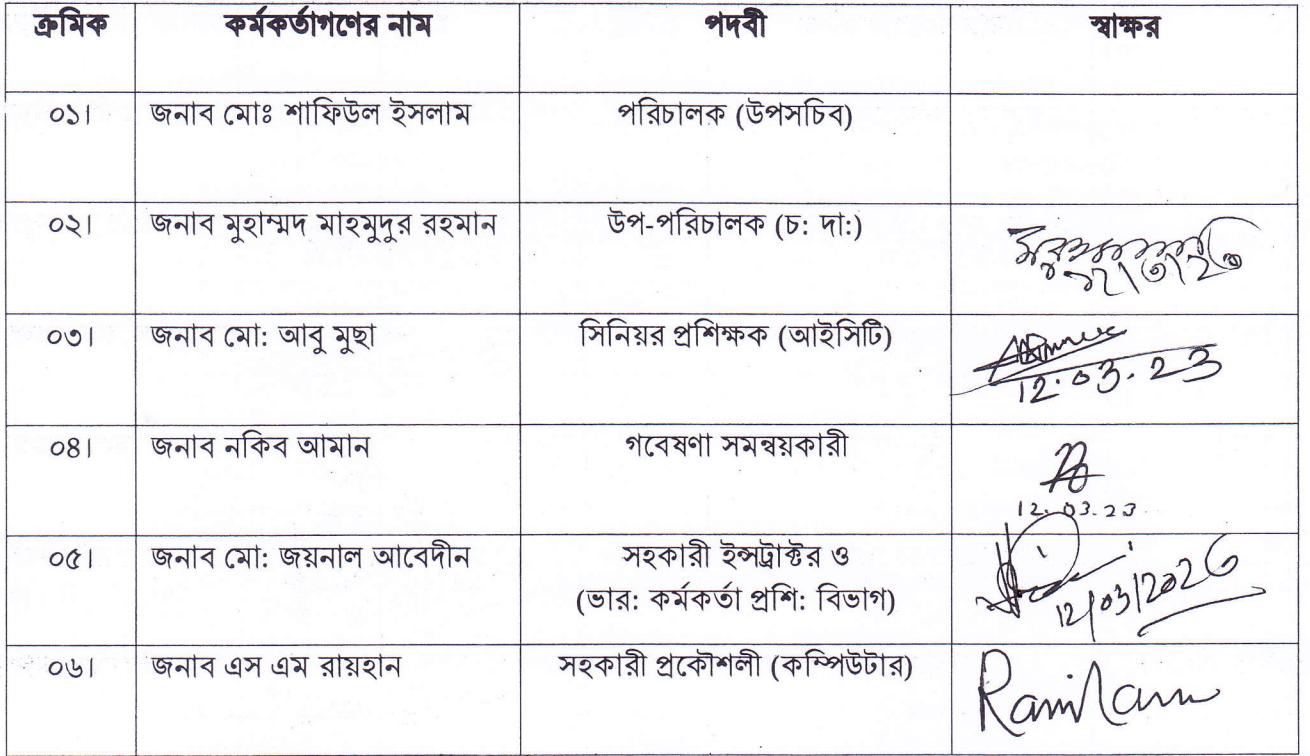 ক্রমিক কর্মকর্তাগণের নাম পদবী স্বাক্ষর
০১। জনাব মোঃ শাফিউল ইসলাম পরিচালক (উপসচিব)
০২। জনাব মুহাম্মদ মাহমুদুর রহমান উপ-পরিচালক (চ: দা:)
০৩। জনাব মো: আবু মুছা সিনিয়র প্রশিক্ষক (আইসিটি)
12.03.23
০৪। জনাব নকিব আমান গবেষণা সমন্বয়কারী
12.03.23
০৫। জনাব মো: জয়নাল আবেদীন সহকারী ইন্সট্রাক্টর ও
(ভার: কর্মকর্তা প্রশি: বিভাগ)
০৬। জনাব এস এম রায়হান সহকারী প্রকৌশলী (কম্পিউটার)